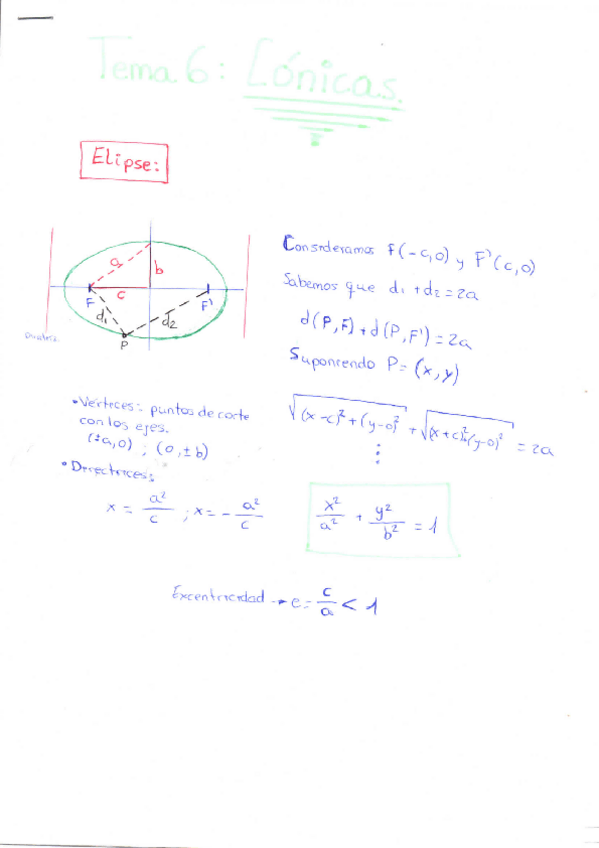 Tema 6: Cónicas.
Elipse:
a
b
c
F
F'
d₁
d₂
P
Consideramos F(-c,0) y F'(c,0)
Sabemos que d₁+d₂=2a
d(P,F)+d(P,F')=2a
Suponiendo P=(x,y)
√((x-c)²+(y-0)²) + √((x+c)²+(y-0)²) = 2a
⋮
x²/a² + y²/b² = 1
• Vértices: puntos de corte
con los ejes.
(±a,0) ; (0,±b)
• Directrices:
x = a²/c ; x = - a²/c
Excentricidad → e = c/a < 1